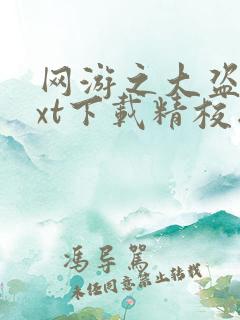 网游之大盗
xt下载精校
冯导驾
未经同意禁止转载